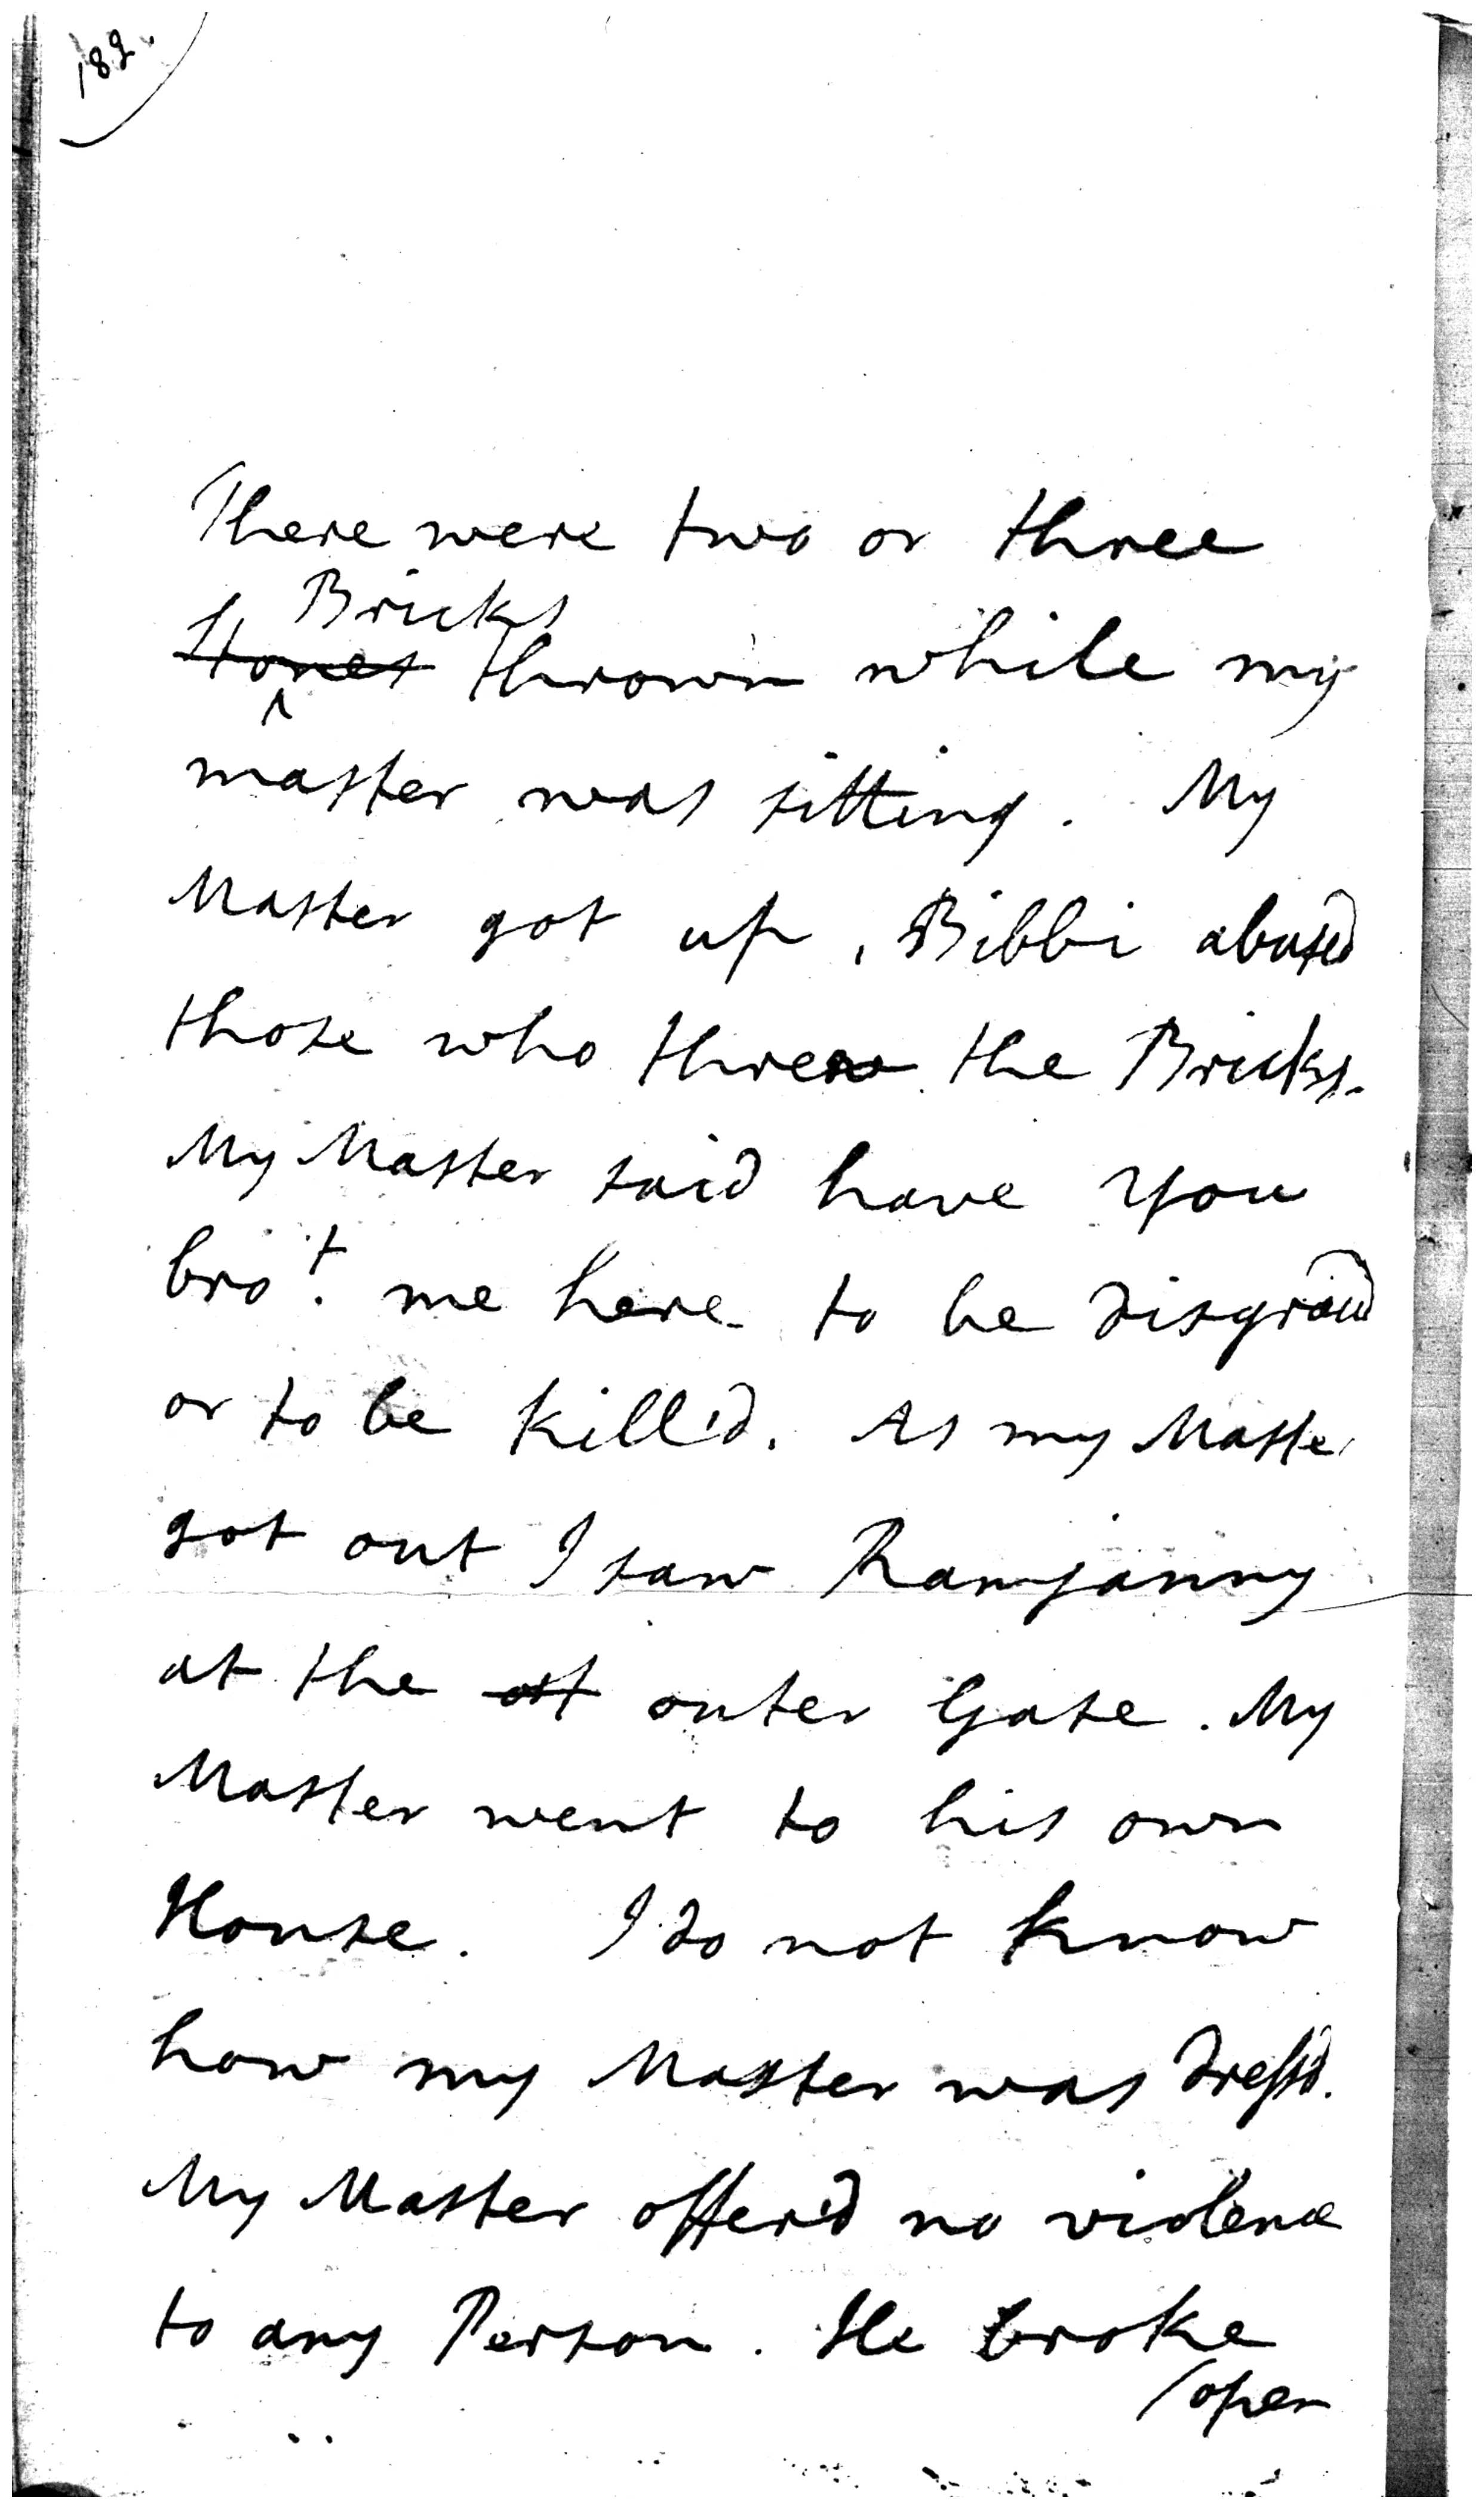 189.
There were two or three
Bricks
Stones thrown while my
^
master was sitting. My
Master got up, Bibbi abused
those who threw the Bricks.
My Master said have you
bro.t me here to be disgraced
or to be kill'd. As my Master
got out I saw Ramjanny
at the outer Gate. My
Master went to his own
House. I do not know
how my Master was dress'd.
My Master offer'd no violence
to any Person. He broke
(open